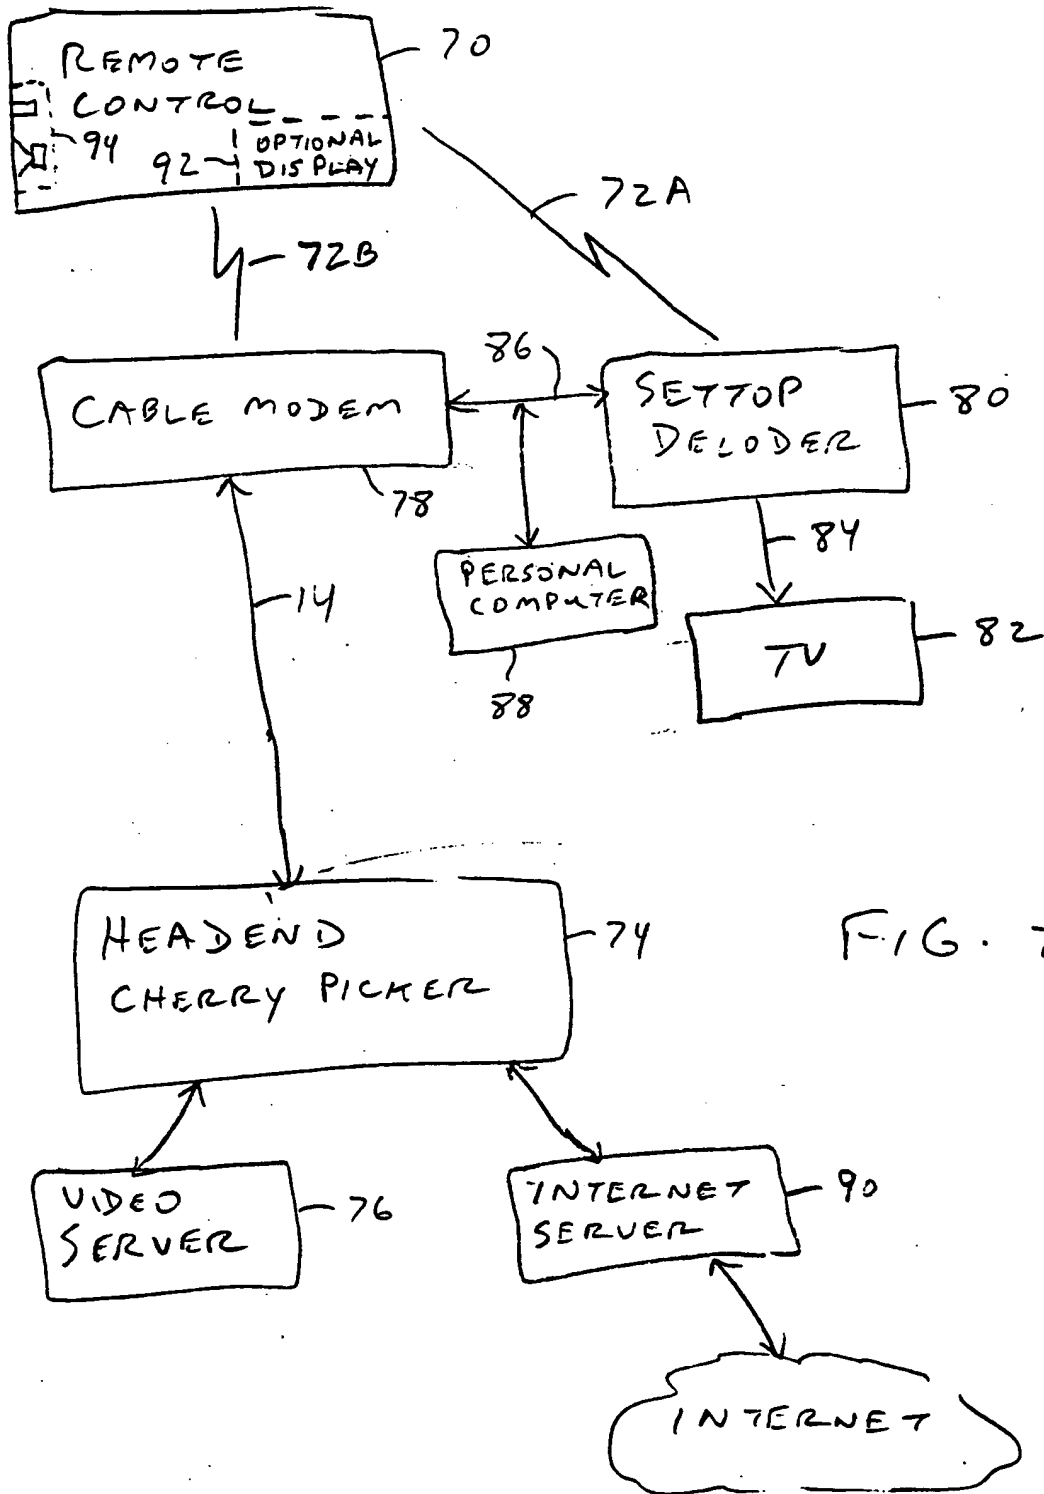 REMOTE
CONTROL
70
94
92
OPTIONAL
DISPLAY
72A
72B
86
CABLE MODEM
SETTOP
DELODER
80
78
84
PERSONAL
COMPUTER
14
TV
82
88
HEADEND
CHERRY PICKER
74
FIG. 7
VIDEO
SERVER
76
INTERNET
SERVER
90
INTERNET